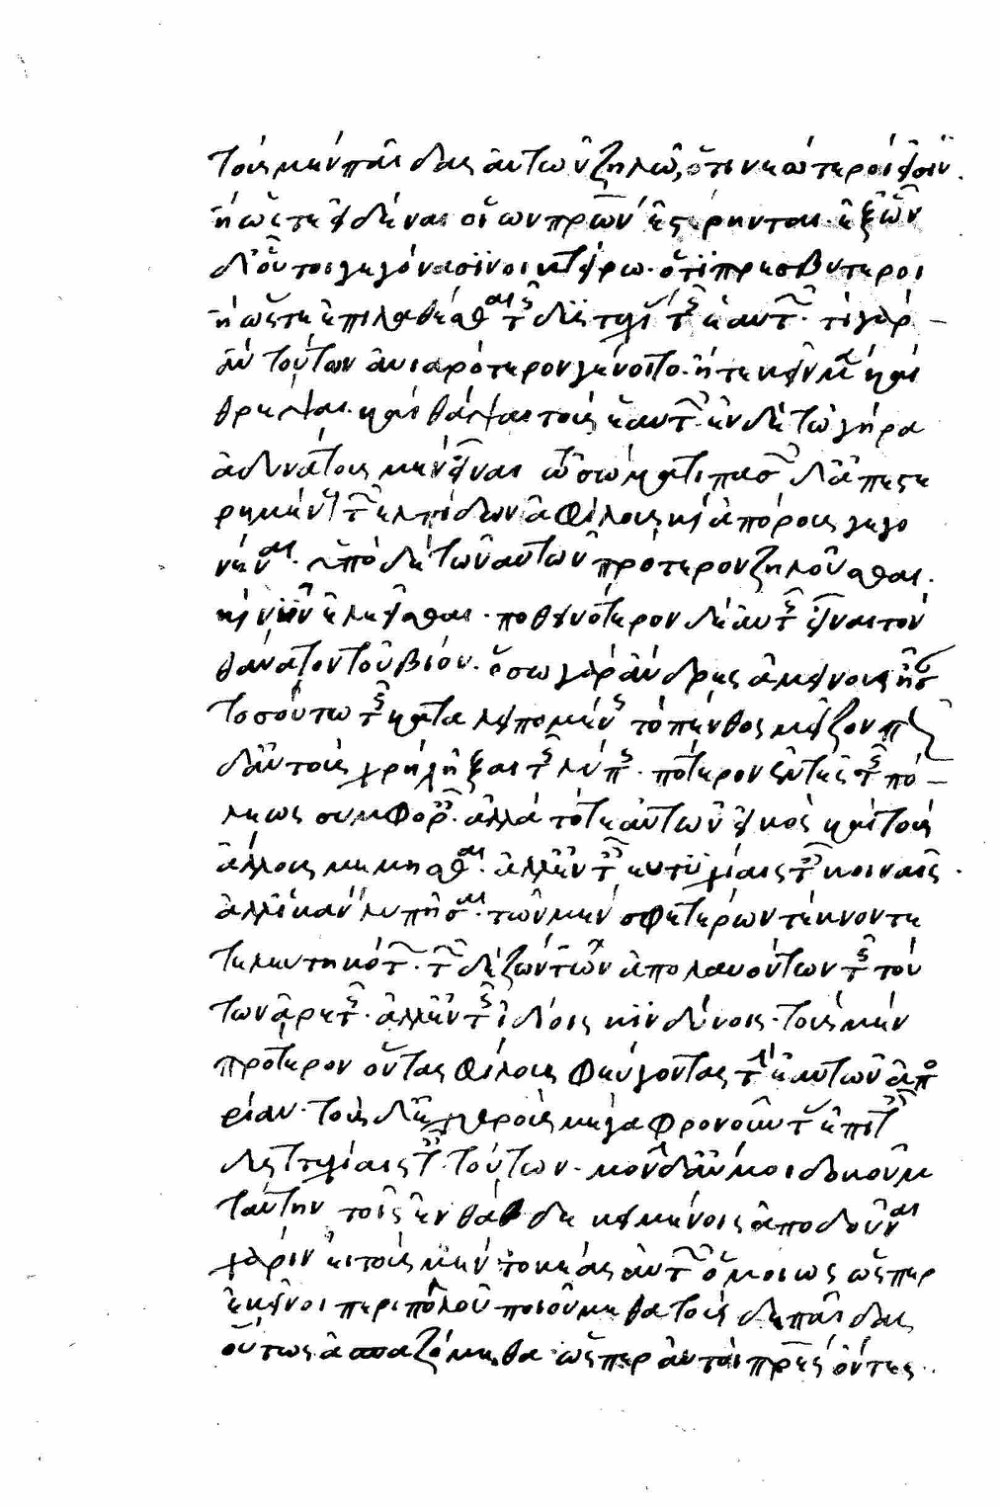 τοὺς μὲν παῖδας αὐτῶν ζηλῶ, ὅτι νεώτεροί εἰσιν.
ἢ ὥστε εἰδέναι οἵων πρων ἐστέρηνται. ἐξ ὧν
δ' οὗτοι γεγόνασϊν οικτείρω. ὅτϊ πρεσβυτεροι
ἢ ὥστε ἐπιλαθέσθαι τῆς δυστυχίας τῆς ἑαυτῶν. τί γὰρ
ἂν τούτων ἀνιαρότερον γένοιτο. ἢ τεκεῖν μὲν καὶ
θρέψαι. καὶ θάψαι τοὺς ἑαυτῶν. ἐν δὲ τῷ γήρα
ἀδυνάτους μὲν εἶναι τῷ σώματι πασῶν δ' ἀπεστε
ρημένους τῶν ἐλπίδων ἀφίλους καὶ ἀπόρους γεγο
νέναι. ὑπὸ δὲ τῶν αὐτῶν πρότερον ζηλοῦσθαι.
καὶ νῦν ἐλεεῖσθαι. ποθεινότερον δὲ αὐτοῖς εἶναι τὸν
θάνατον τοῦ βίου. ὅσω γὰρ ἄνδρες ἀμείνους ἦσαν
τοσούτω τοῖς καταλειπομένοις τὸ πένθος μεῖζον πῶς
δ' αὐτοὺς χρὴ λῆξαι τῆς λύπης. πότερον ἐν ταῖς τῆς πό
λεως συμφοραῖς. ἀλλὰ τότε αὐτῶν εἰκὸς καὶ τοὺς
ἄλλους μεμνῆσθαι. ἀλλ' ἐν ταῖς εὐτυχίαις ταῖς κοιναῖς.
ἀλλ' ἱκανὸν λυπῆσαι. τῶν μὲν σφετέρων τέκνον τε
τελευτηκότων. τῶν δὲ ζώντων ἀπολαυόντων τῆς τού
των ἀρετῆς. ἀλλ' ἐν τοῖς ἰδίοις κϊνδύνοις. τοὺς μὲν
πρότερον ὄντας φίλους φεύγοντας τὴν ἑαυτῶν ἀπο
ρίαν. τοὺς δ' ἐχθροὺς μέγα φρονοῦντας ἐπὶ ταῖς
δυστυχίαις ταῖς τούτων. μόνην δ' ἄν μοι δοκοῦμεν
ταύτην τοῖς ἐνθάδε κειμένοις ἀποδοῦναι
χάριν εἰ τοὺς μὲν τοκέας αὐτῶν ὁμοίως ὥσπερ
ἐκεῖνοι περὶ πολλοῦ ποιούμεθα τοὺς δὲ παῖδας
οὕτως ἀσπαζόμεθα ὥσπερ αὐτοὶ πρες ὄντες..